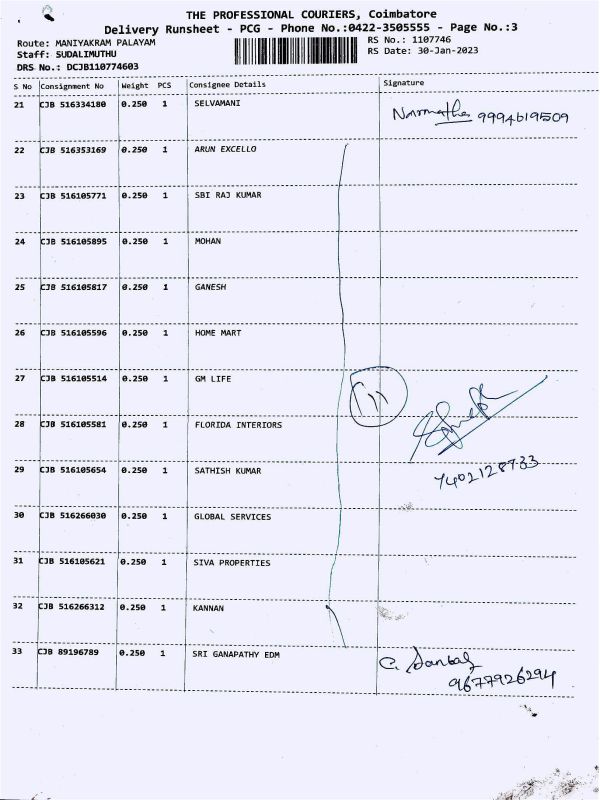 THE PROFESSIONAL COURIERS, Coimbatore
Delivery Runsheet - PCG - Phone No.:0422-3505555 - Page No.:3
Route: MANIYAKRAM PALAYAM
RS No.: 1107746
Staff: SUDALIMUTHU
RS Date: 30-Jan-2023
DRS No.: DCJB110774603
S No Consignment No Weight PCS Consignee Details Signature
21 CJB 516334180 0.250 1 SELVAMANI
Narmatha 9994619509
22 CJB 516353169 0.250 1 ARUN EXCELLO
23 CJB 516105771 0.250 1 SBI RAJ KUMAR
24 CJB 516105895 0.250 1 MOHAN
25 CJB 516105817 0.250 1 GANESH
26 CJB 516105596 0.250 1 HOME MART
27 CJB 516105514 0.250 1 GM LIFE
28 CJB 516105581 0.250 1 FLORIDA INTERIORS
29 CJB 516105654 0.250 1 SATHISH KUMAR
7402128733
30 CJB 516266030 0.250 1 GLOBAL SERVICES
31 CJB 516105621 0.250 1 SIVA PROPERTIES
32 CJB 516266312 0.250 1 KANNAN
33 CJB 89196789 0.250 1 SRI GANAPATHY EDM
9677926294